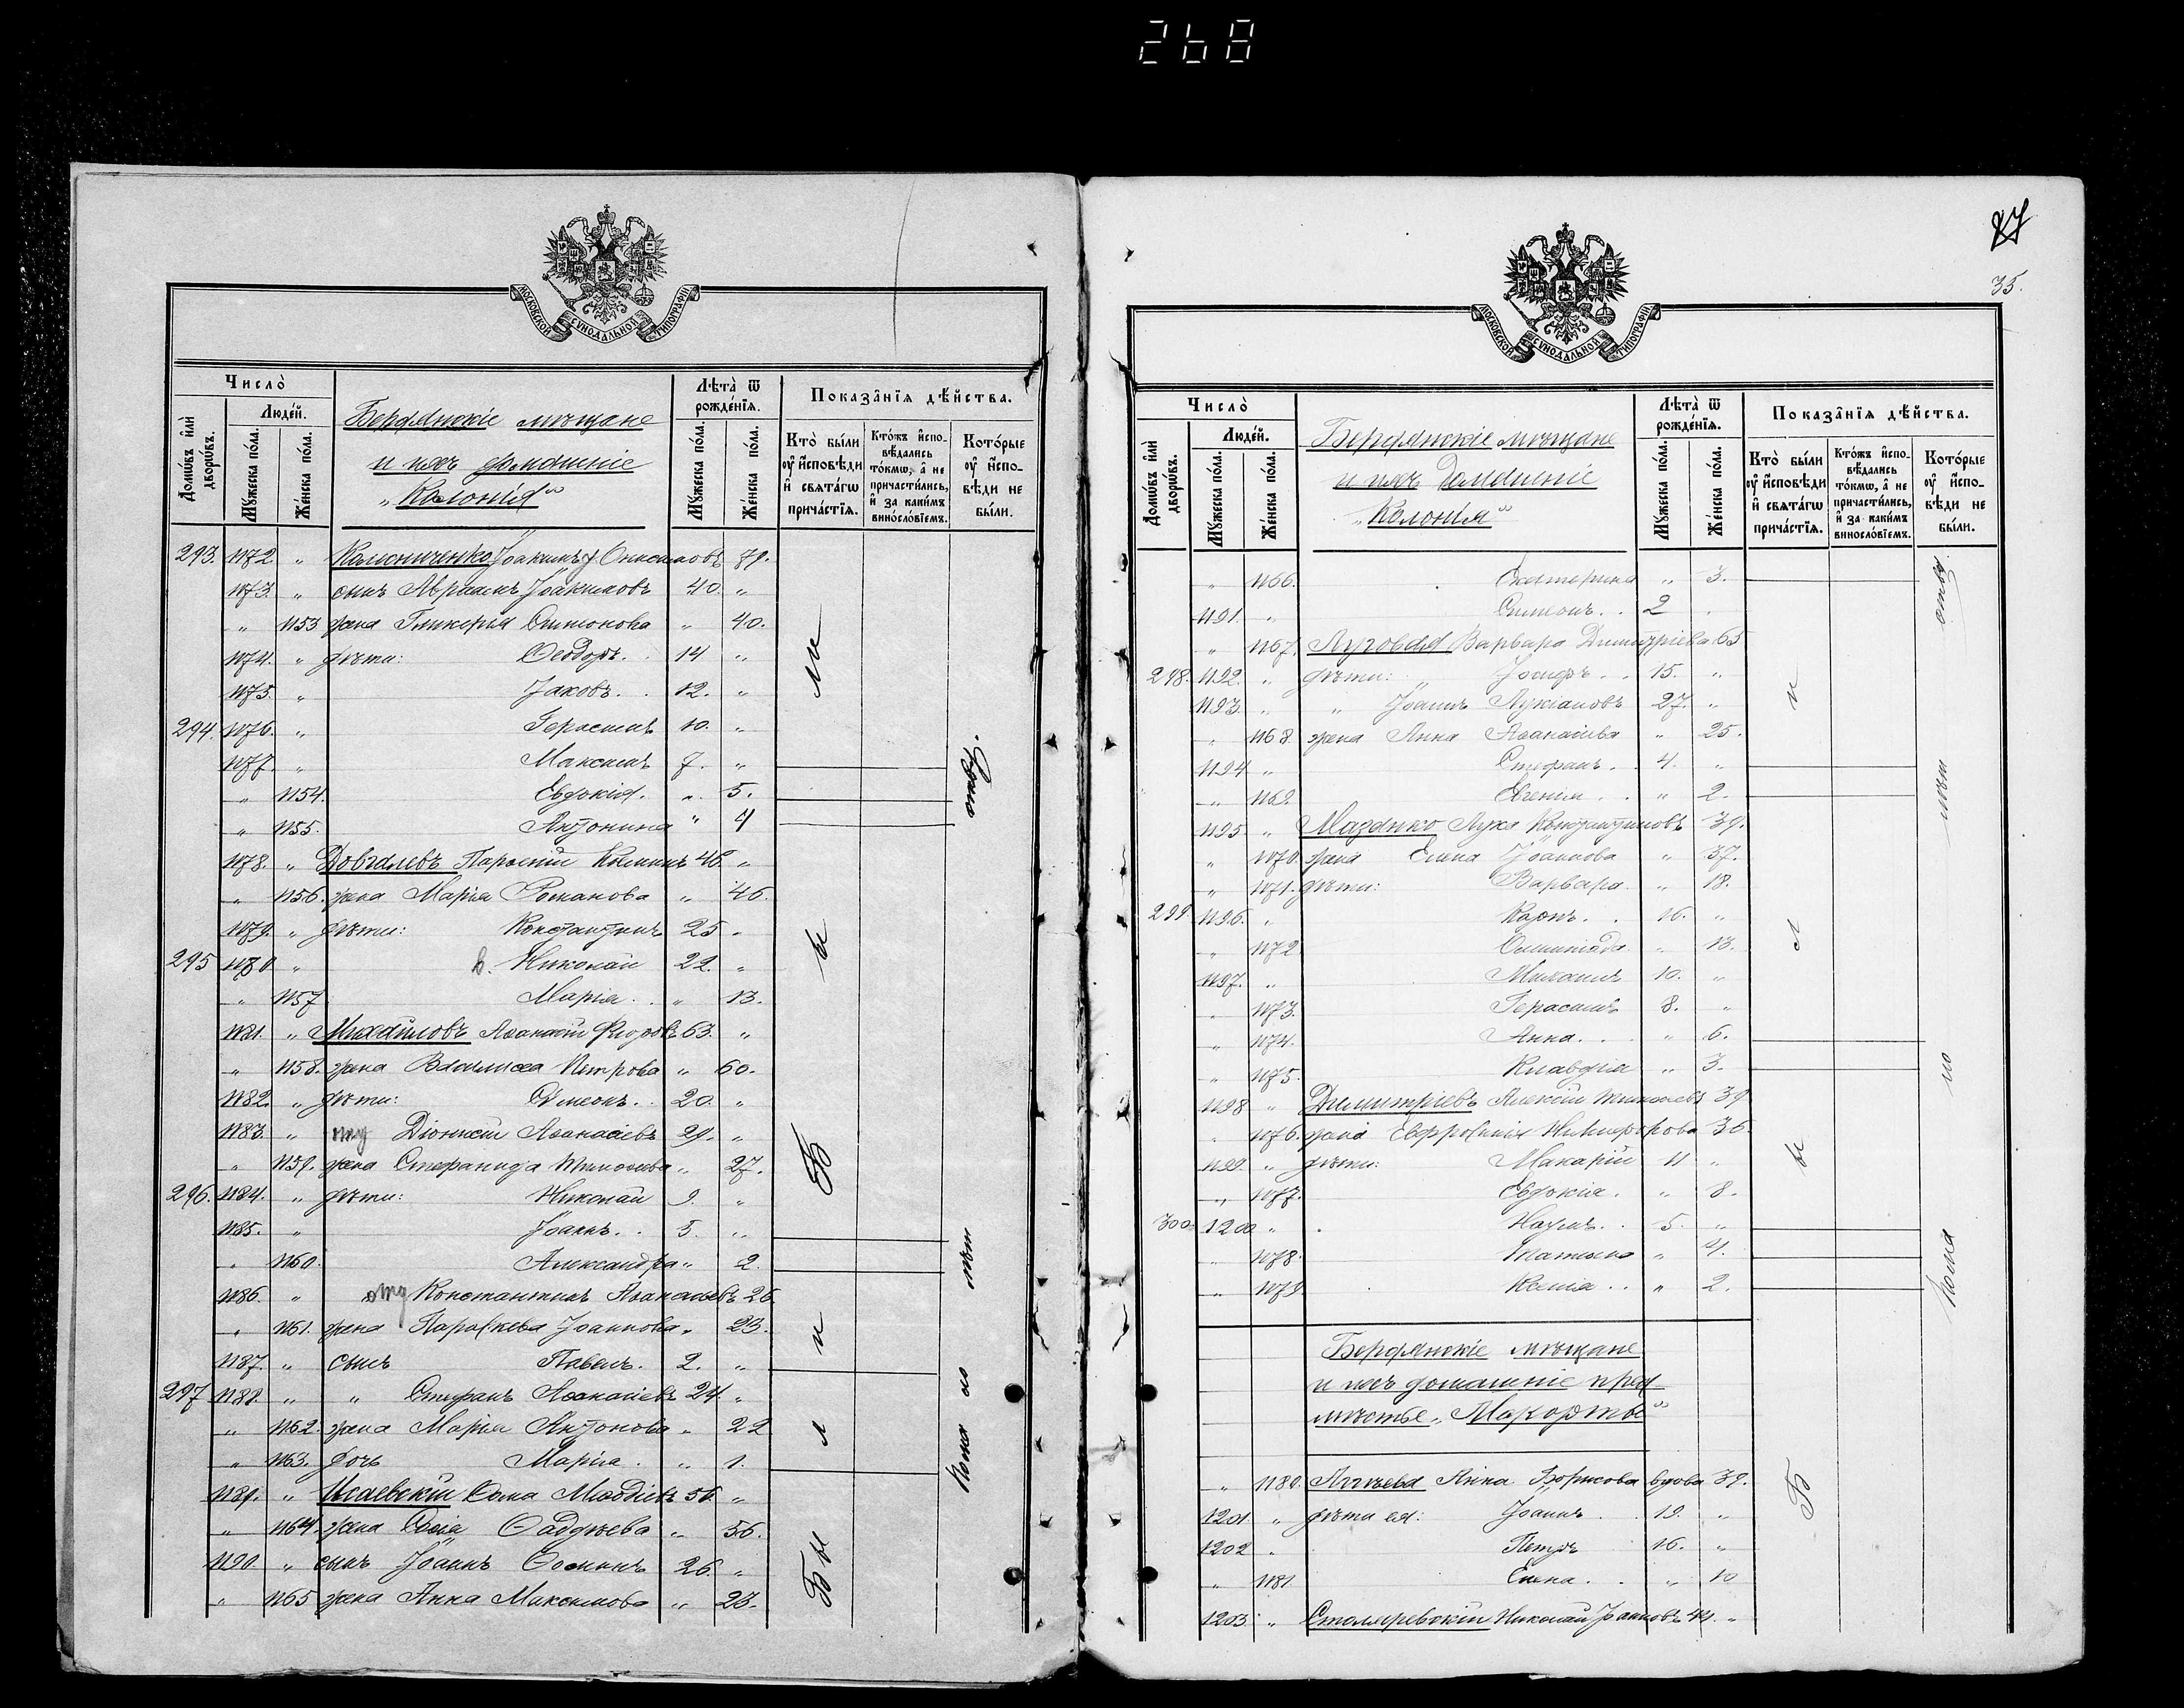 268
МОСКОВСКОЙ СѴНОДАЛЬНОЙ ТИПОГРАФІИ
Число̀
Домѡ́въ и҆лѝ дворѡ́въ.
Люде́й.
Мꙋ́жеска по́ла.
Же́нска по́ла.
Бердянскіе мѣщане
и ихъ домашніе
„Колонія“
Лѣта̀ ѿ рожде́нїѧ.
Мꙋ́жеска по́ла.
Же́нска по́ла.
Показа̑нїѧ дѣ́йства.
Кто̀ бы́ли оу҆ и҆сповѣ́ди и҆ свѧта́гѡ прича́стїѧ.
Кто́жъ и҆спо-вѣ́дались то́кмѡ, а҆ не причасти́лись, и҆ за каки́мъ виносло́вїемъ.
Кото́рые оу҆ и҆спо-вѣ́ди не бы́ли.
293. 1172. „ Колесниченко Іоакимъ Онисимовъ 79.
1173. „ сынъ Авраамъ Іоакимовъ 40. „
„ 1153 жена Гликерія Симонова „ 40.
1174. „ дѣти: Ѳеодоръ. 14 „
1175. „ Іаковъ. . 12. „
294. 1176. „ Герасимъ 10. „
1177. „ Максимъ 7. „
„ 1154. Евдокія. „ 5.
„ 1155. Антонина „ 4
1178. „ Довгалевъ Парѳеній Косминъ 46. „
„ 1156. жена Марія Романова „ 46.
1179. „ дѣти: Константинъ 25 „
295 1180 „ в. Николай 22. „
„ 1157 Марія. . „ 13.
1181. „ Михайловъ Аѳанасій Ѳедоровъ 63. „
„ 1158. жена Василисса Петрова „ 60.
1182. „ дѣти: Симеонъ. . 20. „
1183. „ Діонисій Аѳанасіевъ 29. „
„ 1159. жена Стефанида Тимоѳеева „ 27.
296. 1184. „ дѣти: Николай 9. „
1185. „ Іоаннъ. . 5. „
„ 1160. Александра „ 2.
1186. „ Константинъ Аѳанасіевъ 26.
„ 1161. жена Параскева Іоаннова „ 23.
1187. „ сынъ Павелъ. 2. „
297 1188. „ „ Стефанъ Аѳанасіевъ 24. „
„ 1162. жена Марія Антонова „ 22
„ 1163. дочь Марія. „ 1.
1189. „ Исаевскій Ѳома Меѳодіевъ 56. „
„ 1164. жена Ѳаддѣева „ 56.
1190. „ сынъ Іоаннъ Ѳоминъ 26. „
„ 1165 жена Анна Максимова „ 23.
Были
Были
по мал
отств.
35.
МОСКОВСКОЙ СѴНОДАЛЬНОЙ ТИПОГРАФІИ
Число̀
Домѡ́въ и҆лѝ дворѡ́въ.
Люде́й.
Мꙋ́жеска по́ла.
Же́нска по́ла.
Бердянскіе мѣщане
и ихъ домашніе
„Колонія“
Лѣта̀ ѿ рожде́нїѧ.
Мꙋ́жеска по́ла.
Же́нска по́ла.
Показа̑нїѧ дѣ́йства.
Кто̀ бы́ли оу҆ и҆сповѣ́ди и҆ свѧта́гѡ прича́стїѧ.
Кто́жъ и҆спо-вѣ́дались то́кмѡ, а҆ не причасти́лись, и҆ за каки́мъ виносло́вїемъ.
Кото́рые оу҆ и҆спо-вѣ́ди не бы́ли.
„ 1166. Екатерина „ 3.
1191. „ Симеонъ. . 2 „
„ 1167. Луговая Варвара Димитріева 65
298. 1192. „ дѣти: „ Іосифъ. . 15. „
1193. „ „ Іоаннъ Лукіановъ 27. „
„ 1168. жена Анна Аѳанасіева „ 25.
1194 „ Стефанъ. . 4. „
„ 1169. Евгенія. . „ 2.
1195 „ Лука Константиновъ 39.
„ 1170. жена Елена Іоаннова „ 37.
„ 1171. дѣти: Варвара. „ 18.
299. 1196. „ 16. „
„ 1172. Олимпіада „ 13.
1197. „ Михаилъ 10. „
„ 1173. Герасимъ 8. „
„ 1174. Анна. . „ 6.
„ 1175. Клавдія „ 3.
1198 „ Димитріевъ Алексій 39
„ 1176. жена Евфросинія Никифорова 36.
1199. „ дѣти: Макарій 11 „
„ 1177. Евдокія. „ 8.
300. 1200 „ Наумъ. . 5. „
„ 1178. Татіана „ 4.
„ 1179. Ксенія. . „ 2.
Бердянскіе мѣщане
и ихъ домашніе пред
мѣстье „Макорты“
„ 1180. Анна Борисова вдова 39.
1201. „ дѣти ея: Іоаннъ. . 19. „
1202 „ Петръ 16. „
„ 1181. Елена. . „ 10
1203. „ Столяревскій Николай Іоанновъ 44. „
Были